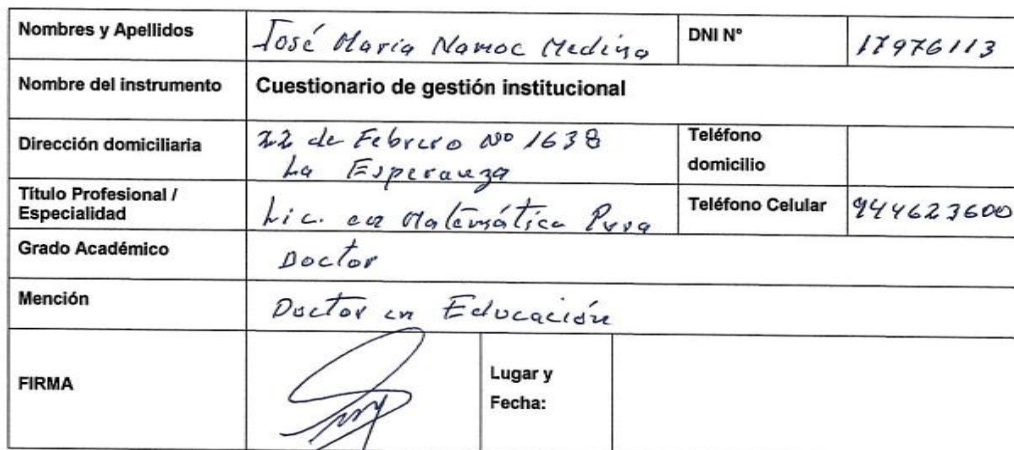 Nombres y Apellidos José María Namoc Medina DNI N° 17976113
Nombre del instrumento Cuestionario de gestión institucional
Dirección domiciliaria 22 de Febrero Nº 1638
La Esperanza
Teléfono domicilio
Título Profesional / Especialidad Lic. en Matemática Pura Teléfono Celular 944623600
Grado Académico Doctor
Mención Doctor en Educación
FIRMA Lugar y Fecha: